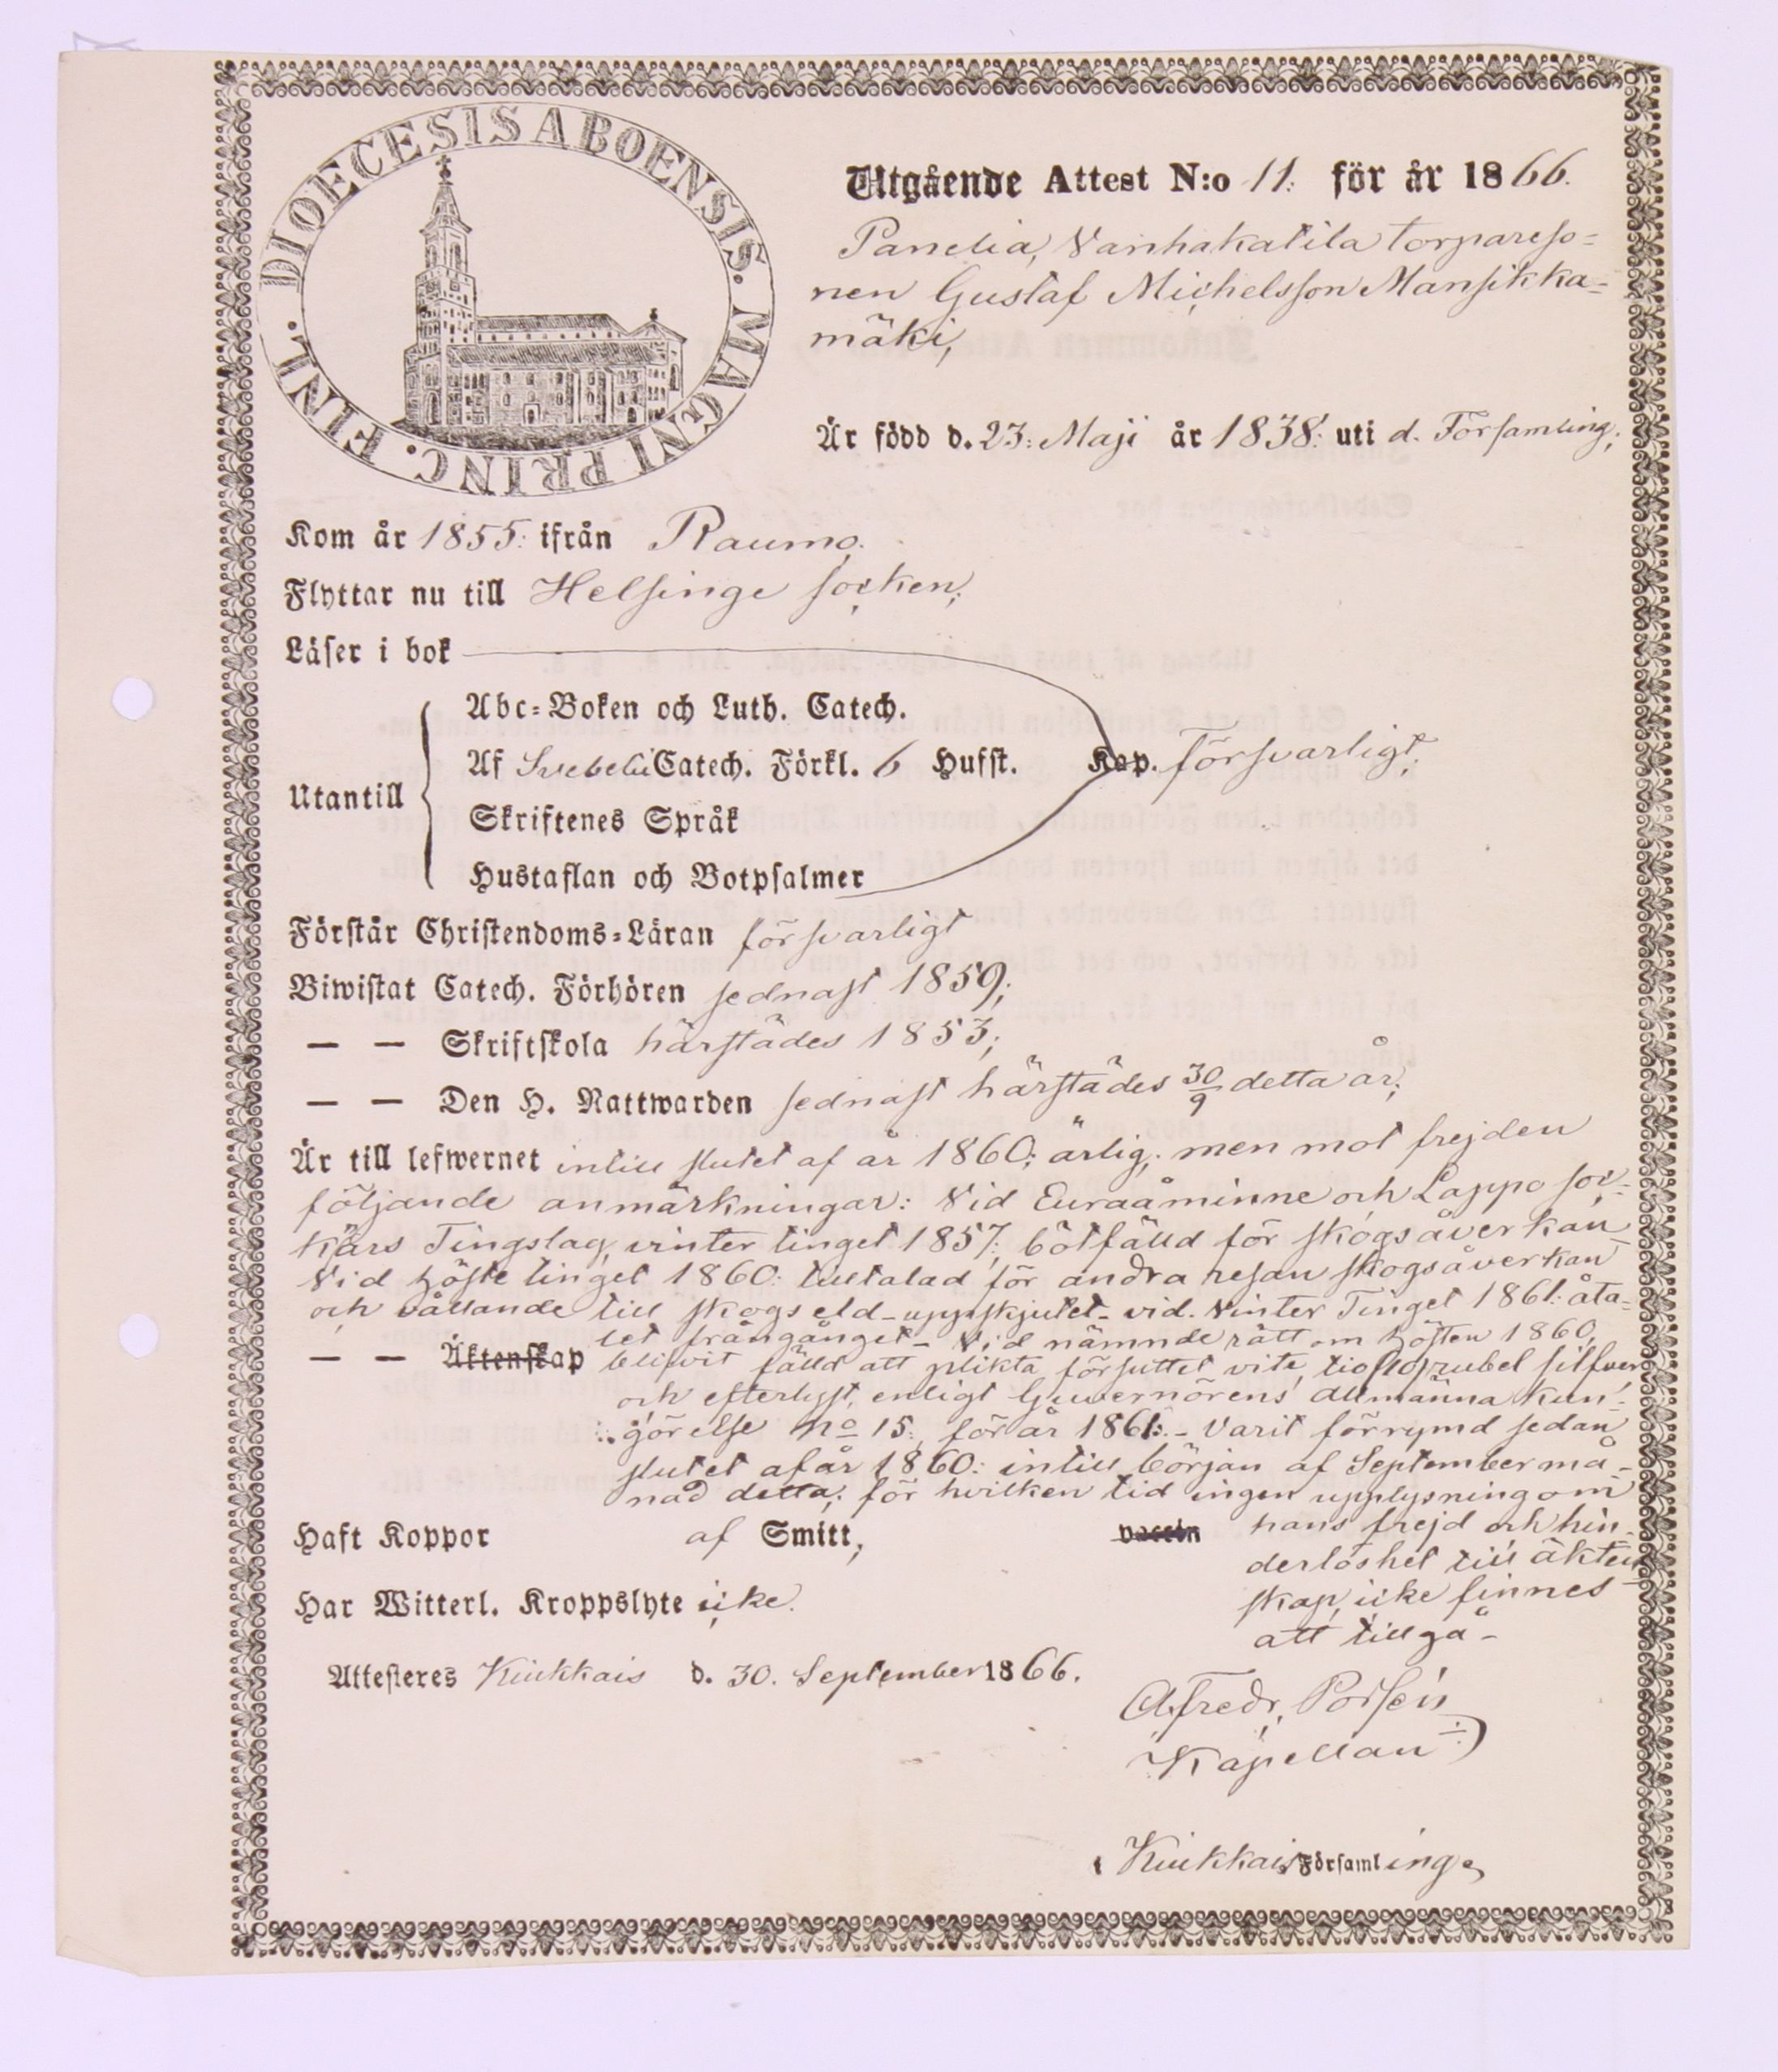 DIOECESIS ABOENSIS. MAGNI PRINC. FINL.
Utgående Attest N:o 11. för år 1866.
Panelia, Vanhakatila torpareso=
nen Gustaf Michelsson Mansikka=
mäki,
Är född d. 23: Maji år 1838: uti d. Församling;
Kom år 1855: ifrån Raumo.
Flyttar nu till Helsinge socken;
Läser i bok
Abc=Boken och Luth. Catech.
Af Svebelii Catech. Förkl. 6 Hufst. Kap. försvarligt;
Utantill
Skriftenes Språk
Hustaflan och Botpsalmer
Förstår Christendoms=Läran försvarligt
Biwistat Catech. Förhören sednast 1859;
— — Skriftskola härstädes 1853;
— — Den H. Nattwarden sednast härstädes 30/9 detta år;
Är till lefwernet intill slutet af år 1860: ärlig; men mot frejden
följande anmärkningar: Vid Euraåminne och Lappo soc=
kärs Tingslag vinter tinget 1857; bötfälld för skogsåverkan
Vid höste tinget 1860: tilltalad för andra resan skogsåverkan
och vållande till skogseld - uppskjutet - vid Vinter Tinget 1861: åta=
let frångånget - Vid nämnde rätt om hösten 1860,
— — Äktenskap blifvit fälld att plikta försuttet vite, tio (10) rubel silfver
och efterlyst, enligt Guvernörens Allmänna Kun=
görelse No 15: för år 1861: - Varit förrymd sedan
slutet af år 1860: intill början af September må=
nad detta; för hvilken tid ingen upplysning om
Haft Koppor af Smitt, vaccin hans frejd och hin=
derlöshet till äkten=
Har Witterl. Kroppslyte icke. skap, icke finnes
att tillgå -
Attesteres Kiukkais d. 30. September 1866.
A. Fredr. Polsén
Kapellan
Kiukkais Församling